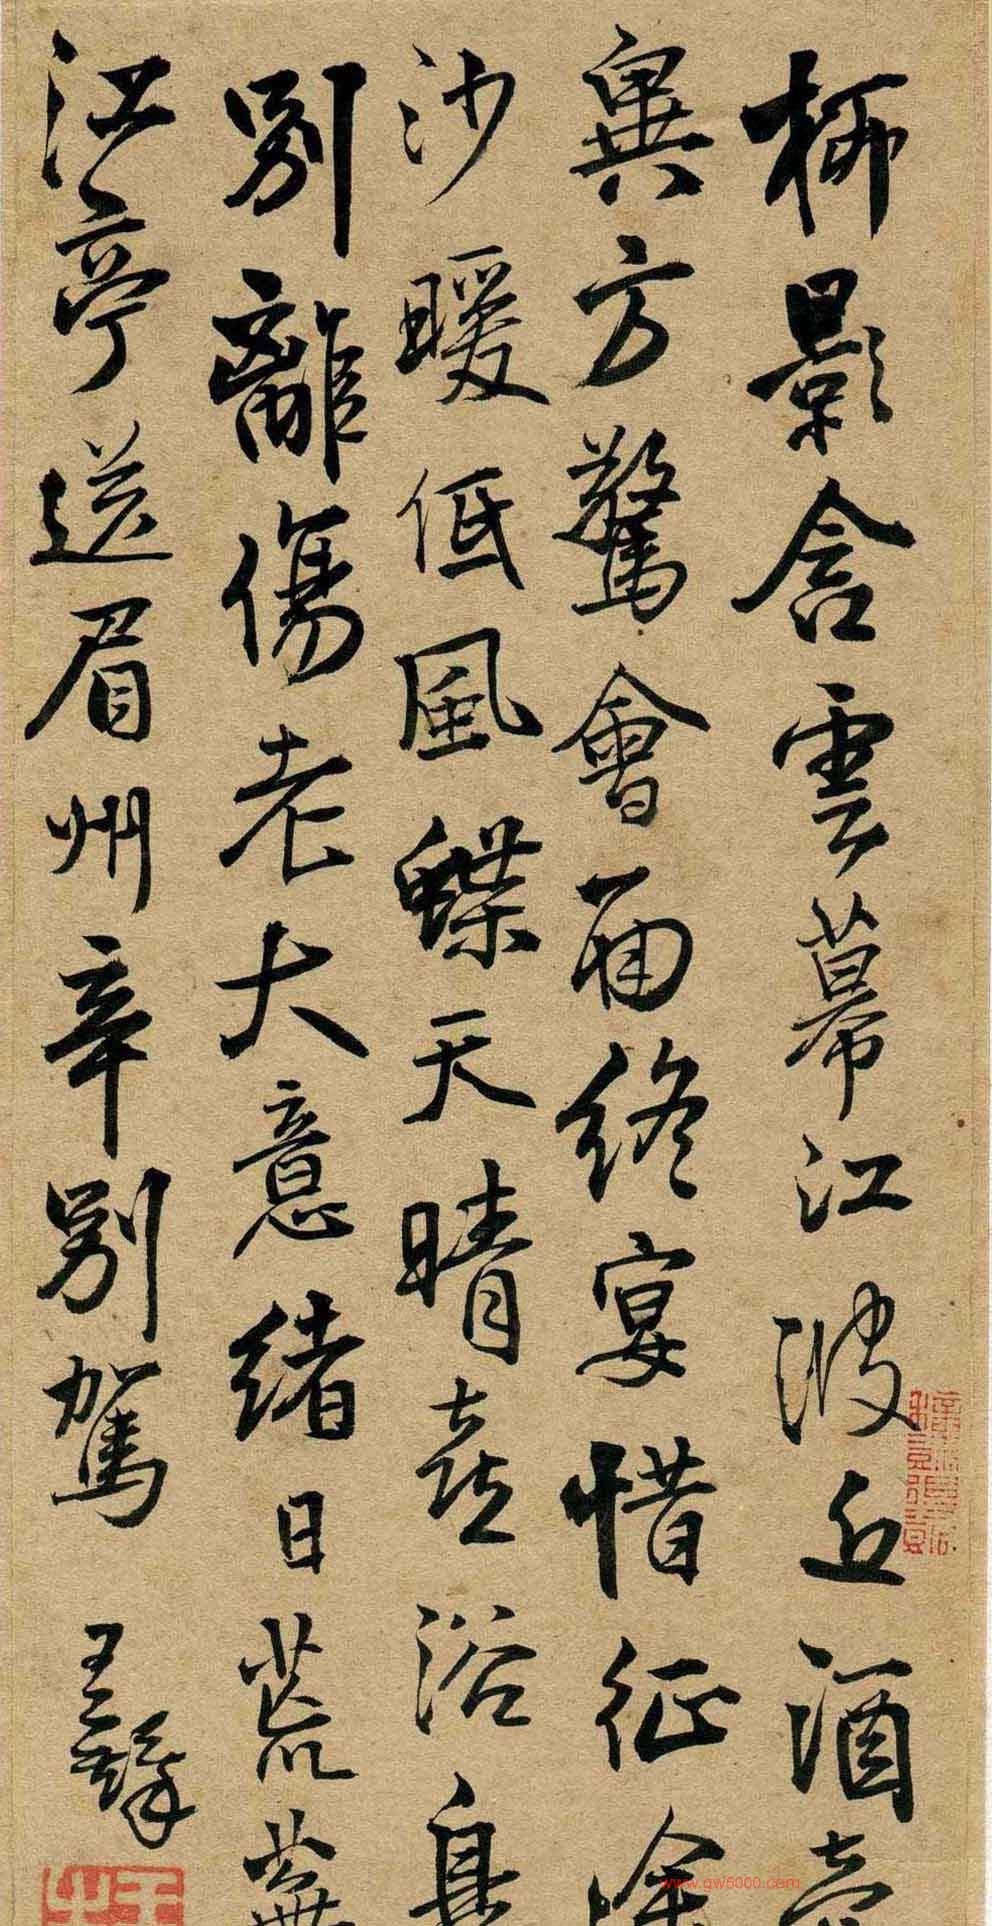 柳影含雲幕江波近酒壺
異方驚會面終宴惜征途
沙暖低風蝶天晴喜浴鳬
別離傷老大意緒日荒蕪
江亭送眉州辛別駕 王鐸
www.qw5000.com